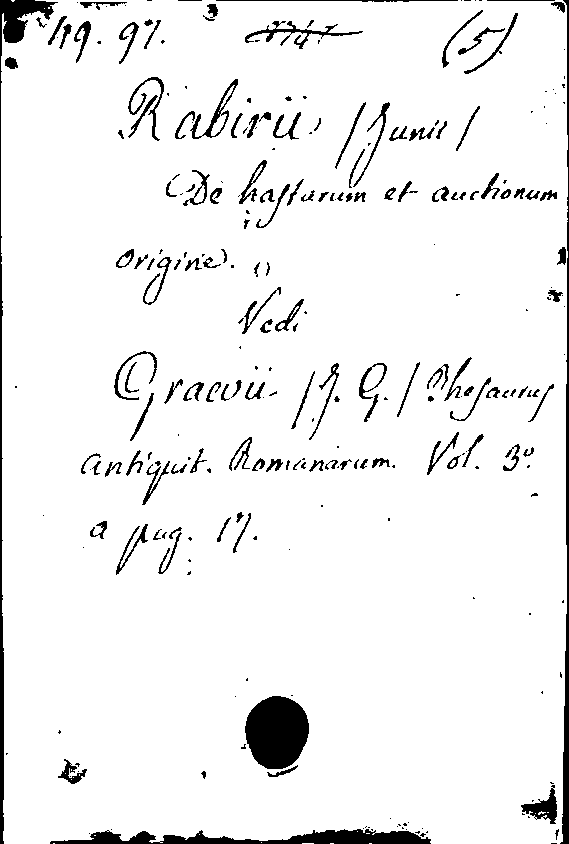 119. 97. (5)
Rabirii /Junii/
De hastarum et auctionum
origine.
Vedi
Graevii /J. G./ Thesaurus
antiquit. Romanarum. Vol. 3º
a pag. 17.